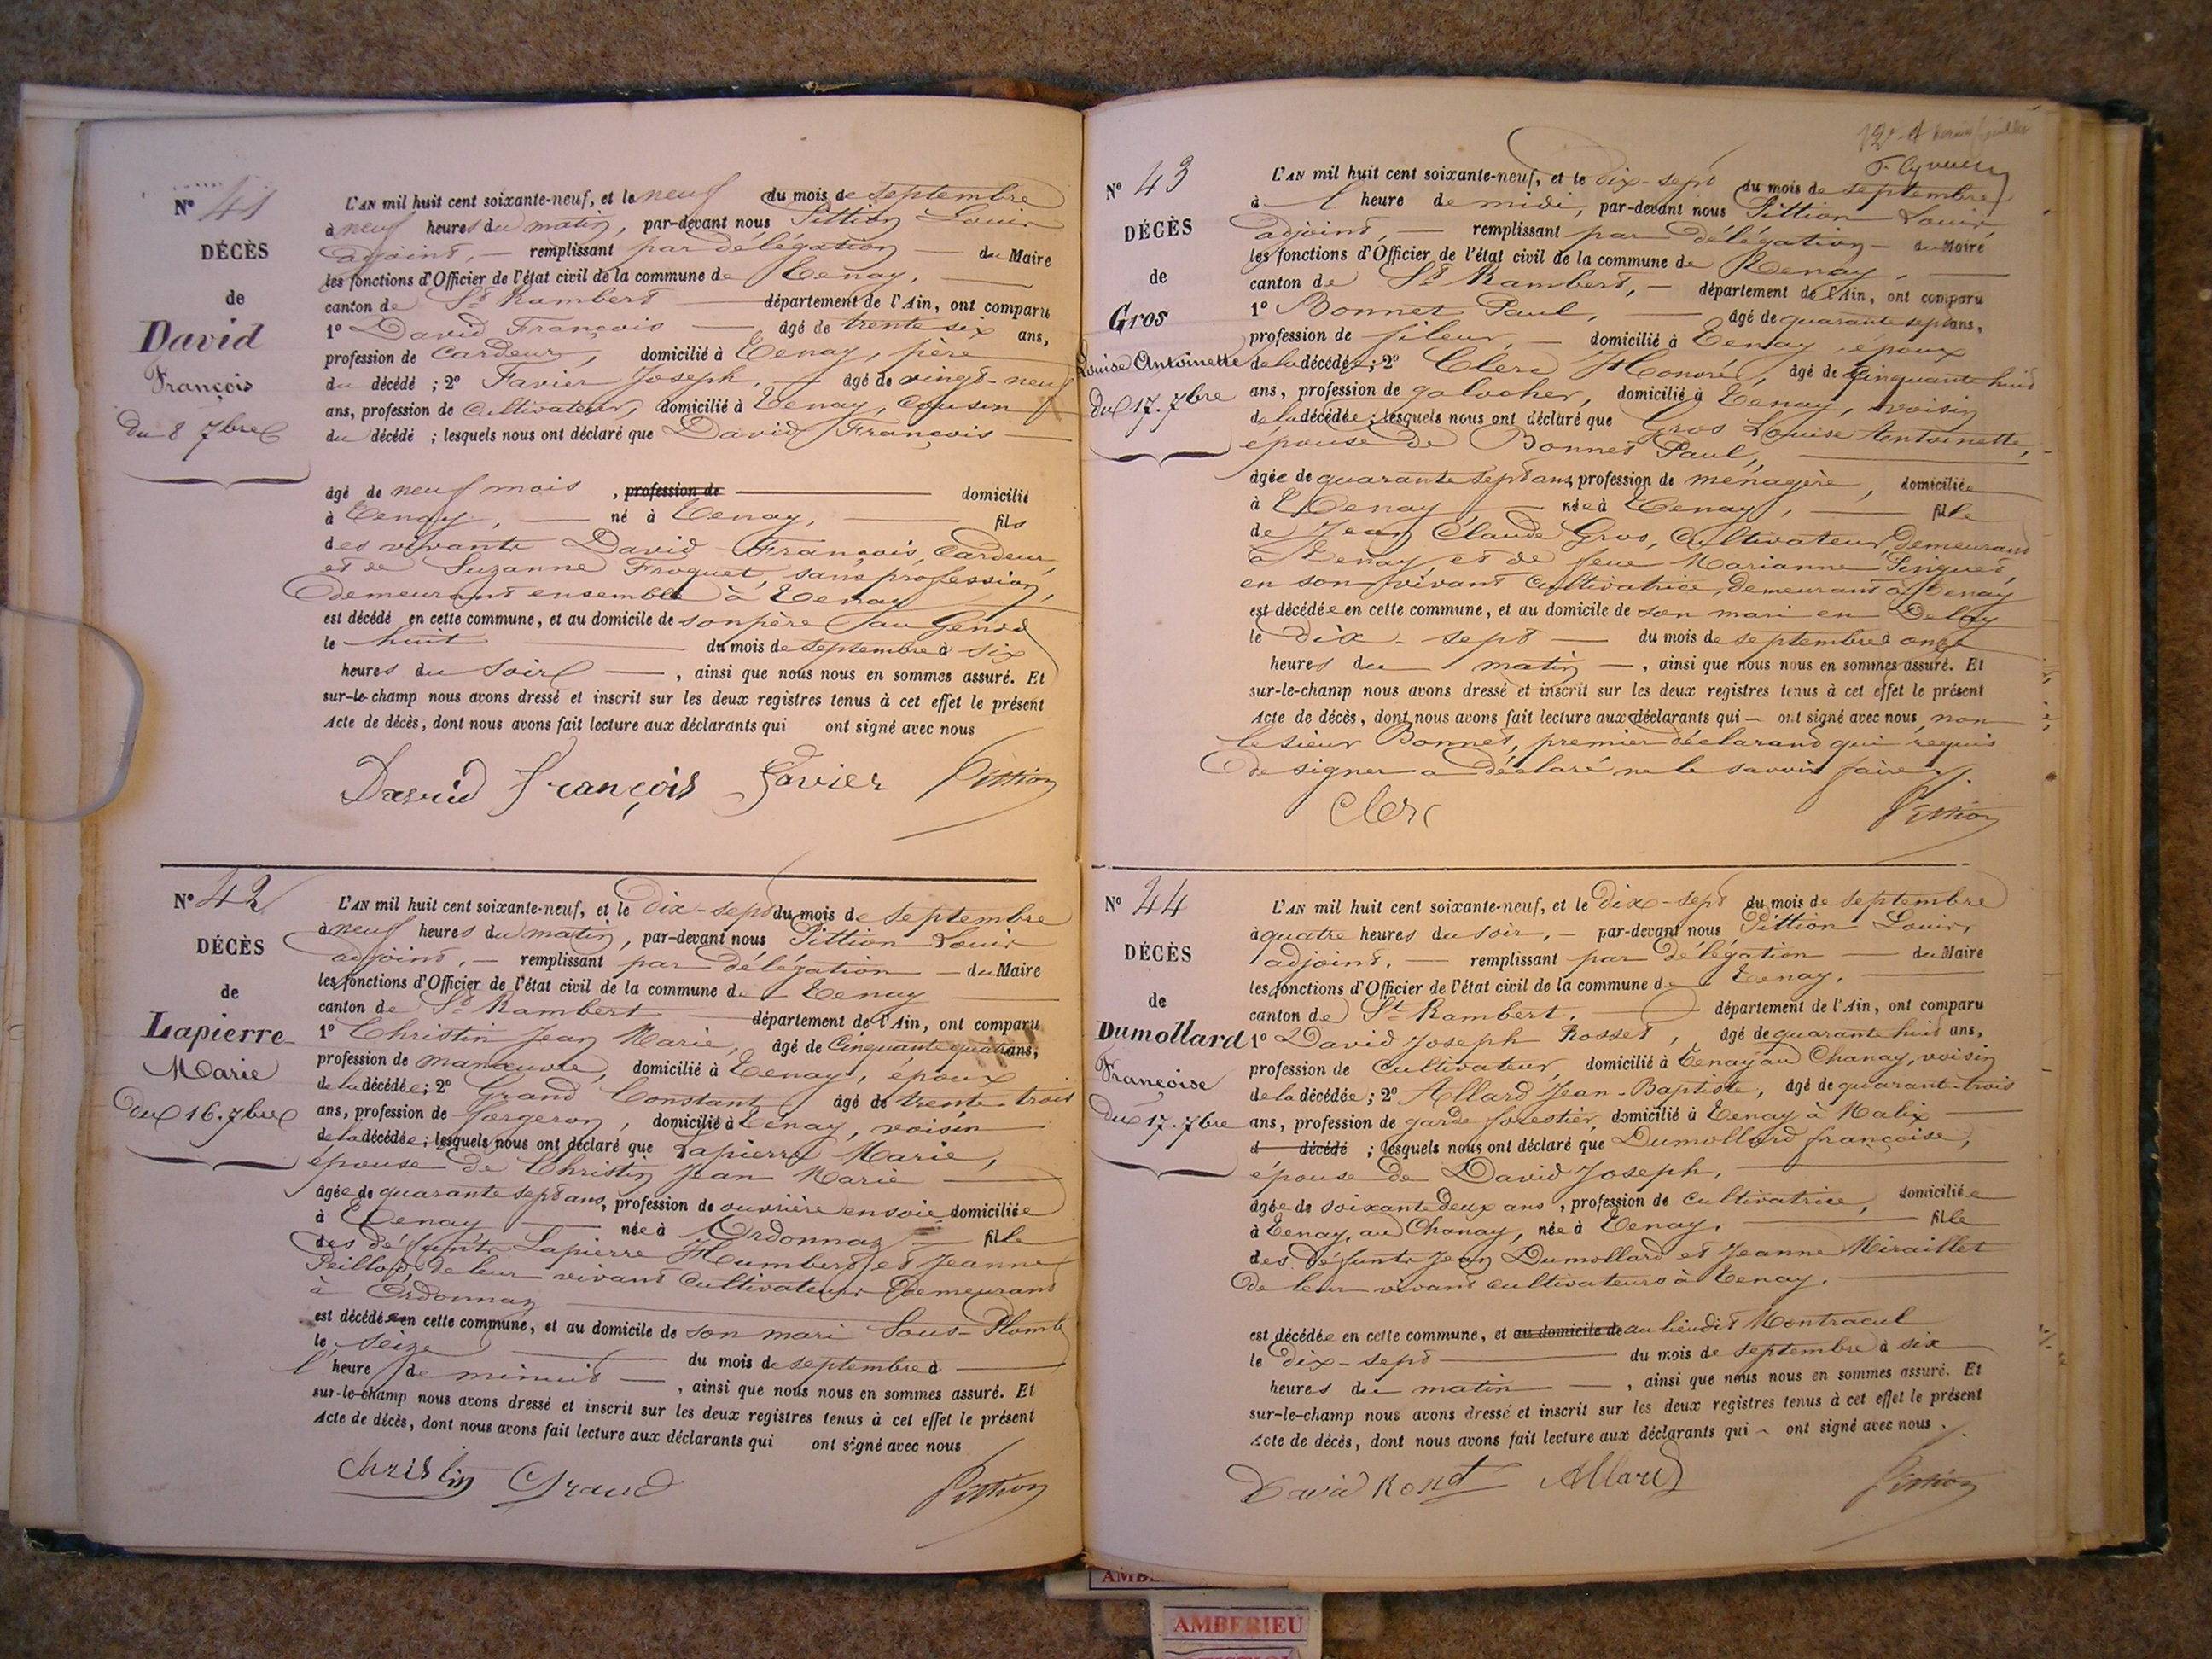 N° 41
DÉCÈS
de
David
François
Du 8 7bre
L'AN mil huit cent soixante-neuf, et le neuf du mois de septembre
à neuf heures du matin, par-devant nous Pittion Louis
adjoint, — remplissant par délégation — du Maire
les fonctions d'Officier de l'état civil de la commune de Tenay,
canton de St Rambert — département de l'Ain, ont comparu
1° David François — âgé de trente six ans,
profession de Cardeur, domicilié à Tenay, père
du décédé ; 2° Favier Joseph, — âgé de vingt-neuf
ans, profession de Cultivateur, domicilié à Tenay, Cousin
du décédé ; lesquels nous ont déclaré que David François
âgé de neuf mois, profession de — domicilié
à Tenay, — né à Tenay, — fils
des vivants David François, Cardeur,
et de Suzanne Froquet, sans profession,
demeurant ensemble à Tenay
est décédé en cette commune, et au domicile de son père au
le huit — du mois de septembre à six
heures du soir — , ainsi que nous nous en sommes assuré. Et
sur-le-champ nous avons dressé et inscrit sur les deux registres tenus à cet effet le présent
Acte de décès, dont nous avons fait lecture aux déclarants qui ont signé avec nous
David françois Favier Pittion
N° 42
DÉCÈS
de
Lapierre
Marie
Du 16. 7bre
L'AN mil huit cent soixante-neuf, et le dix-sept du mois de septembre
à neuf heures du matin, par-devant nous Pittion Louis
adjoint, — remplissant par délégation — du Maire
les fonctions d'Officier de l'état civil de la commune de Tenay
canton de St Rambert — département de l'Ain, ont comparu
1° Christin Jean Marie, âgé de Cinquante quatre ans,
profession de manœuvre, domicilié à Tenay, époux
de la décédée ; 2° Grand Constant, âgé de trente trois
ans, profession de forgeron, domicilié à Tenay, voisin
de la décédée ; lesquels nous ont déclaré que Lapierre Marie,
épouse de Christin Jean Marie
âgée de quarante sept ans, profession de ouvrière en soie domiciliée
à Tenay — née à Ordonnaz — fille
des défunts Lapierre Humbert et Jeanne
Peillod, de leur vivant Cultivateurs Demeurant
à Ordonnaz
est décédée en cette commune, et au domicile de son mari Sous-Plomb
le seize — du mois de septembre à
l'heure de minuit — , ainsi que nous nous en sommes assuré. Et
sur-le-champ nous avons dressé et inscrit sur les deux registres tenus à cet effet le présent
Acte de décès, dont nous avons fait lecture aux déclarants qui ont signé avec nous
christin Grand Pittion
N° 43
DÉCÈS
de
Gros
Louise Antoinette
Du 17. 7bre
L'AN mil huit cent soixante-neuf, et le dix-sept du mois de septembre
à l'heure de midi, par-devant nous Pittion Louis
adjoint, — remplissant par délégation — du Maire
les fonctions d'Officier de l'état civil de la commune de Tenay,
canton de St Rambert, — département de l'Ain, ont comparu
1° Bonnet Paul, — âgé de quarante sept ans,
profession de fileur, — domicilié à Tenay époux
de la décédée ; 2° Clerc Honoré, âgé de Cinquante huit
ans, profession de galocher, domicilié à Tenay, voisin
de la décédée ; lesquels nous ont déclaré que Gros Louise Antoinette,
épouse de Bonnet Paul,
âgée de quarante sept ans, profession de ménagère, domiciliée
à Tenay — née à Tenay, — fille
de Jean Claude Gros, Cultivateur, demeurant
à Tenay, et de feue Marianne
en son vivant Cultivatrice, demeurant à Tenay
est décédée en cette commune, et au domicile de son mari en
le dix-sept — du mois de septembre à onze
heures du matin — , ainsi que nous nous en sommes assuré. Et
sur-le-champ nous avons dressé et inscrit sur les deux registres tenus à cet effet le présent
Acte de décès, dont nous avons fait lecture aux déclarants qui — ont signé avec nous, non
le sieur Bonnet, premier déclarant qui requis
de signer a déclaré ne le savoir faire.
Clerc Pittion
N° 44
DÉCÈS
de
Dumollard
Françoise
Du 17. 7bre
L'AN mil huit cent soixante-neuf, et le dix-sept du mois de septembre
à quatre heures du soir, — par-devant nous Pittion Louis,
adjoint, — remplissant par délégation — du Maire
les fonctions d'Officier de l'état civil de la commune de Tenay,
canton de St Rambert, — département de l'Ain, ont comparu
1° David Joseph Rosset, âgé de quarante huit ans,
profession de Cultivateur, domicilié à Tenay au Chanay, voisin
de la décédée ; 2° Allard Jean-Baptiste, âgé de quarante-trois
ans, profession de garde forestier, domicilié à Tenay à Malix
d décédé ; lesquels nous ont déclaré que Dumollard françoise,
épouse de David Joseph,
âgée de soixante deux ans, profession de Cultivatrice, domiciliée
à Tenay, au Chanay, née à Tenay, — fille
des défunts Jean Dumollard et Jeanne Miraillet
de leur vivant cultivateurs à Tenay.
est décédée en cette commune, et au domicile de au lieudit Montracul
le dix-sept — du mois de septembre à six
heures du matin — , ainsi que nous nous en sommes assuré. Et
sur-le-champ nous avons dressé et inscrit sur les deux registres tenus à cet effet le présent
Acte de décès, dont nous avons fait lecture aux déclarants qui — ont signé avec nous.
David Allard Pittion
AMBERIEU